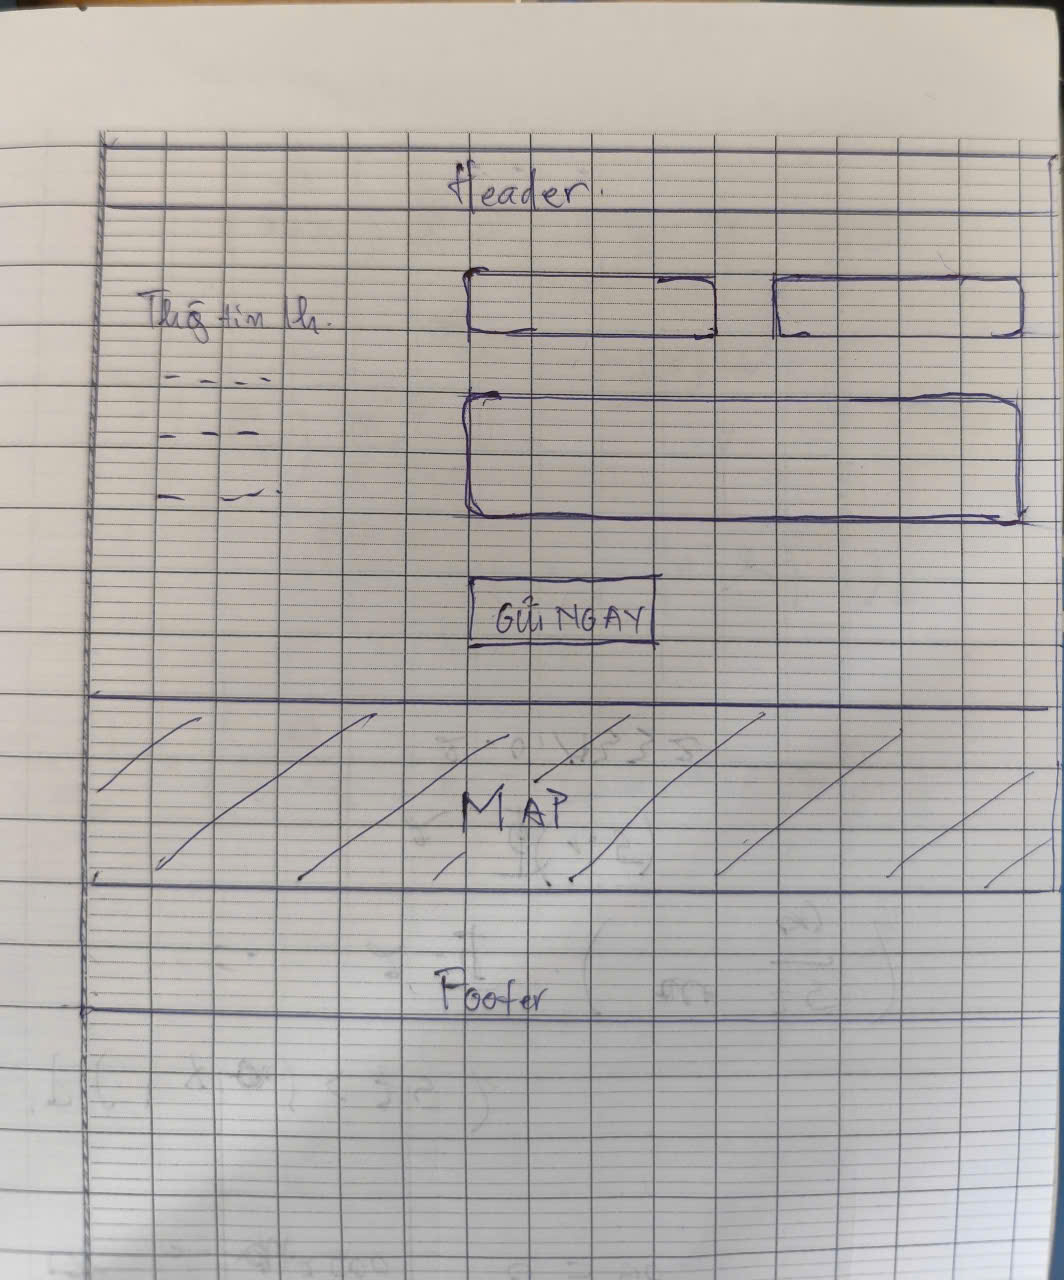 Header.
Thg tin lh.
GỬI NGAY
MAP
Footer